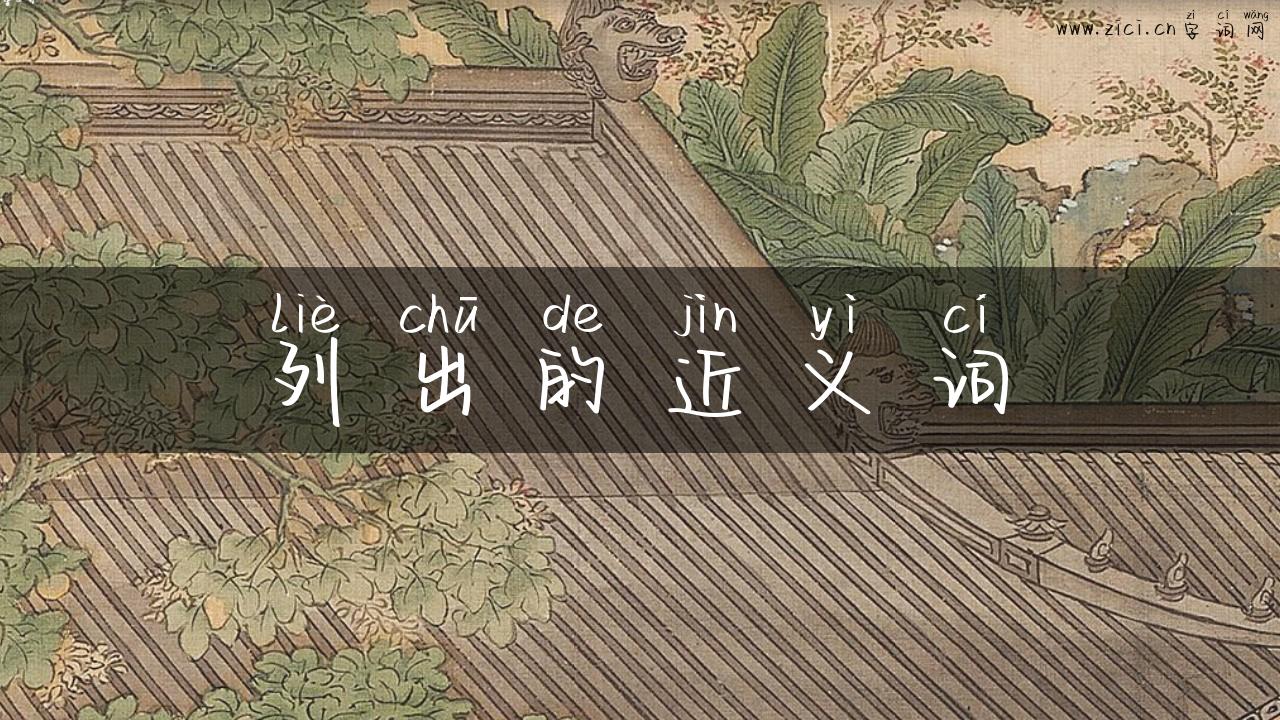 zì cí wǎng
www.zici.cn 字词网
liè chū de jìn yì cí
列出的近义词